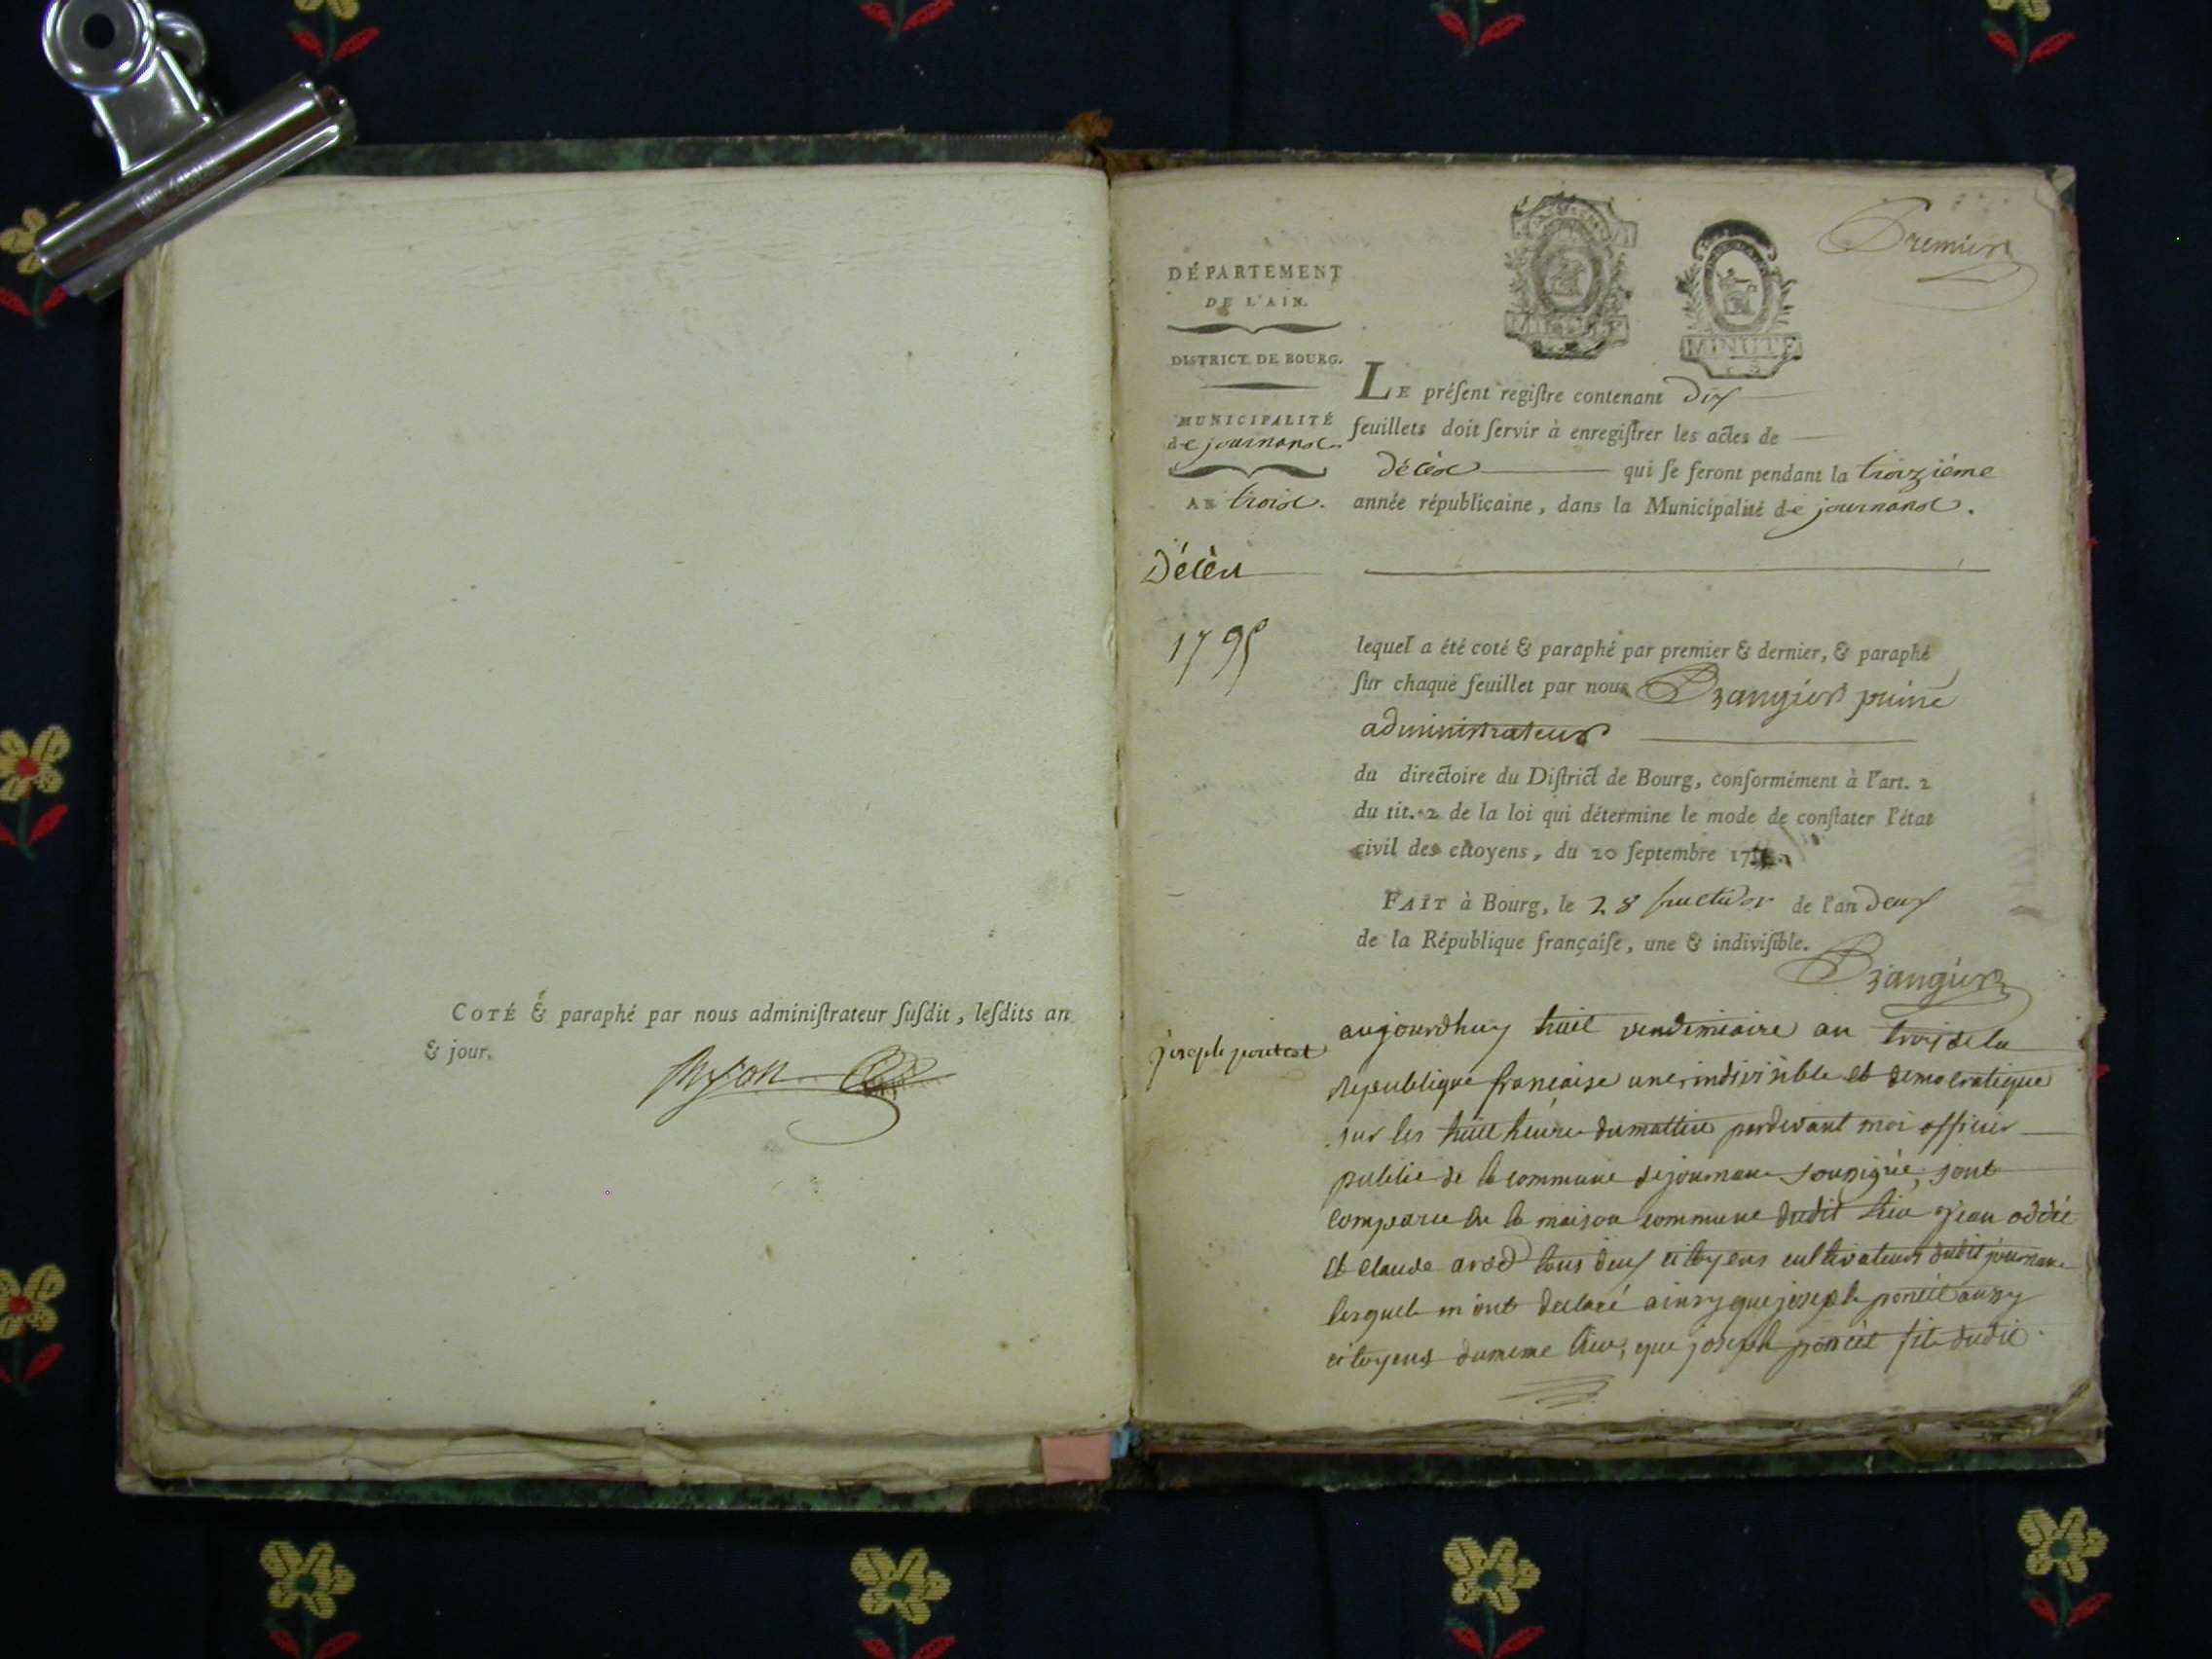 COTÉ & paraphé par nous adminiſtrateur ſuſdit, leſdits an
& jour.
Premier
DÉPARTEMENT
DE L'AIN.
DISTRICT DE BOURG.
MUNICIPALITÉ
de journans.
AN trois.
Décès
1795
MINUTE
MINUTE
LE préſent regiſtre contenant dix
feuillets doit ſervir à enregiſtrer les actes de
décès qui ſe feront pendant la troizième
année républicaine, dans la Municipalité de journans.
lequel a été coté & paraphé par premier & dernier, & paraphé
ſur chaque feuillet par nous Brangier puiné
administrateur
du directoire du Diſtrict de Bourg, conformément à l'art. 2
du tit. 2 de la loi qui détermine le mode de conſtater l'état
civil des citoyens, du 20 ſeptembre
FAIT à Bourg, le 28 fructidor de l'an deux
de la République françaiſe, une & indiviſible.
Brangier
joseph poncet
aujourdhuy huit vendemiaire an trois de la
republique francaise une, indivisible et democratique
sur les huit heure du mattin pardevant moi officier
public de la commune de journans sousigné, sont
comparu en la maison commune dudit lieu jean oddet
et claude aved tous deux citoyens cultivateurs dudit journans
lesquels m'ont declaré ainsy que joseph poncet aussy
citoyens du meme lieu, que joseph poncet fils dudit